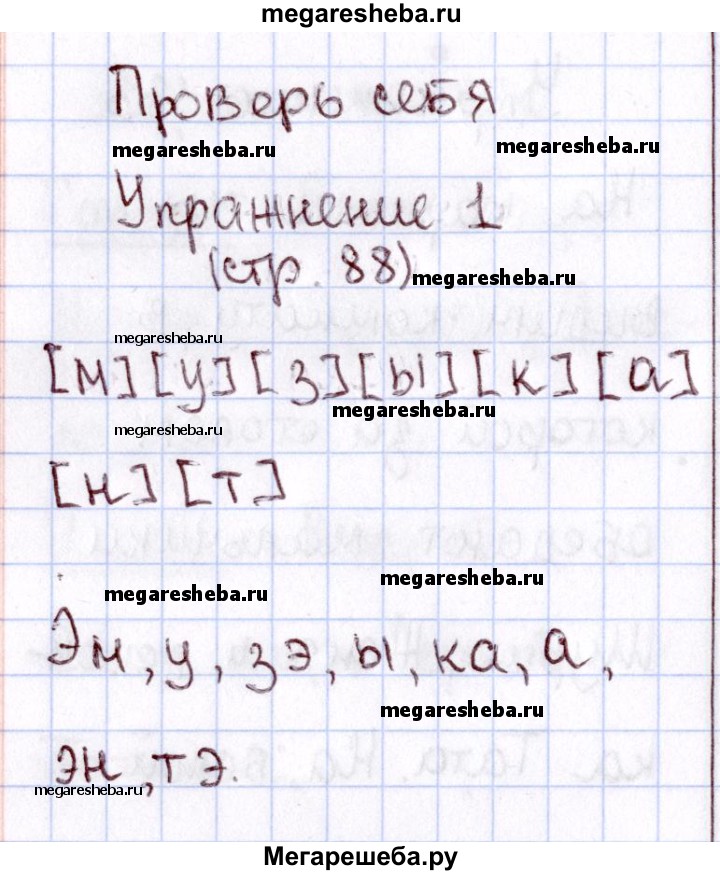 megaresheba.ru
Проверь себя
megaresheba.ru megaresheba.ru
Упражнение 1
(стр. 88) megaresheba.ru
megaresheba.ru
[м] [у] [з] [ы] [к] [а]
megaresheba.ru
megaresheba.ru
[н] [т]
megaresheba.ru
megaresheba.ru
Эм, у, зэ, ы, ка, а,
megaresheba.ru
эн, тэ.
megaresheba.ru
Мегарешеба.ру